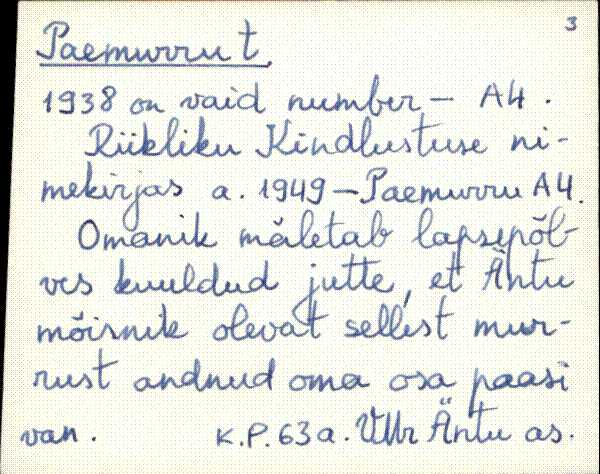 3
Paemurru t.
1938 on vaid number – A4.
Riikliku Kindlustuse ni-
mekirjas a. 1949 – Paemurru A4.
Omanik mäletab lapsepõl-
ves kuuldud jutte, et Äntu
mõisnik olevat sellest mur-
rust andnud oma osa paasi
van. K.P. 63a. VMr Äntu as.